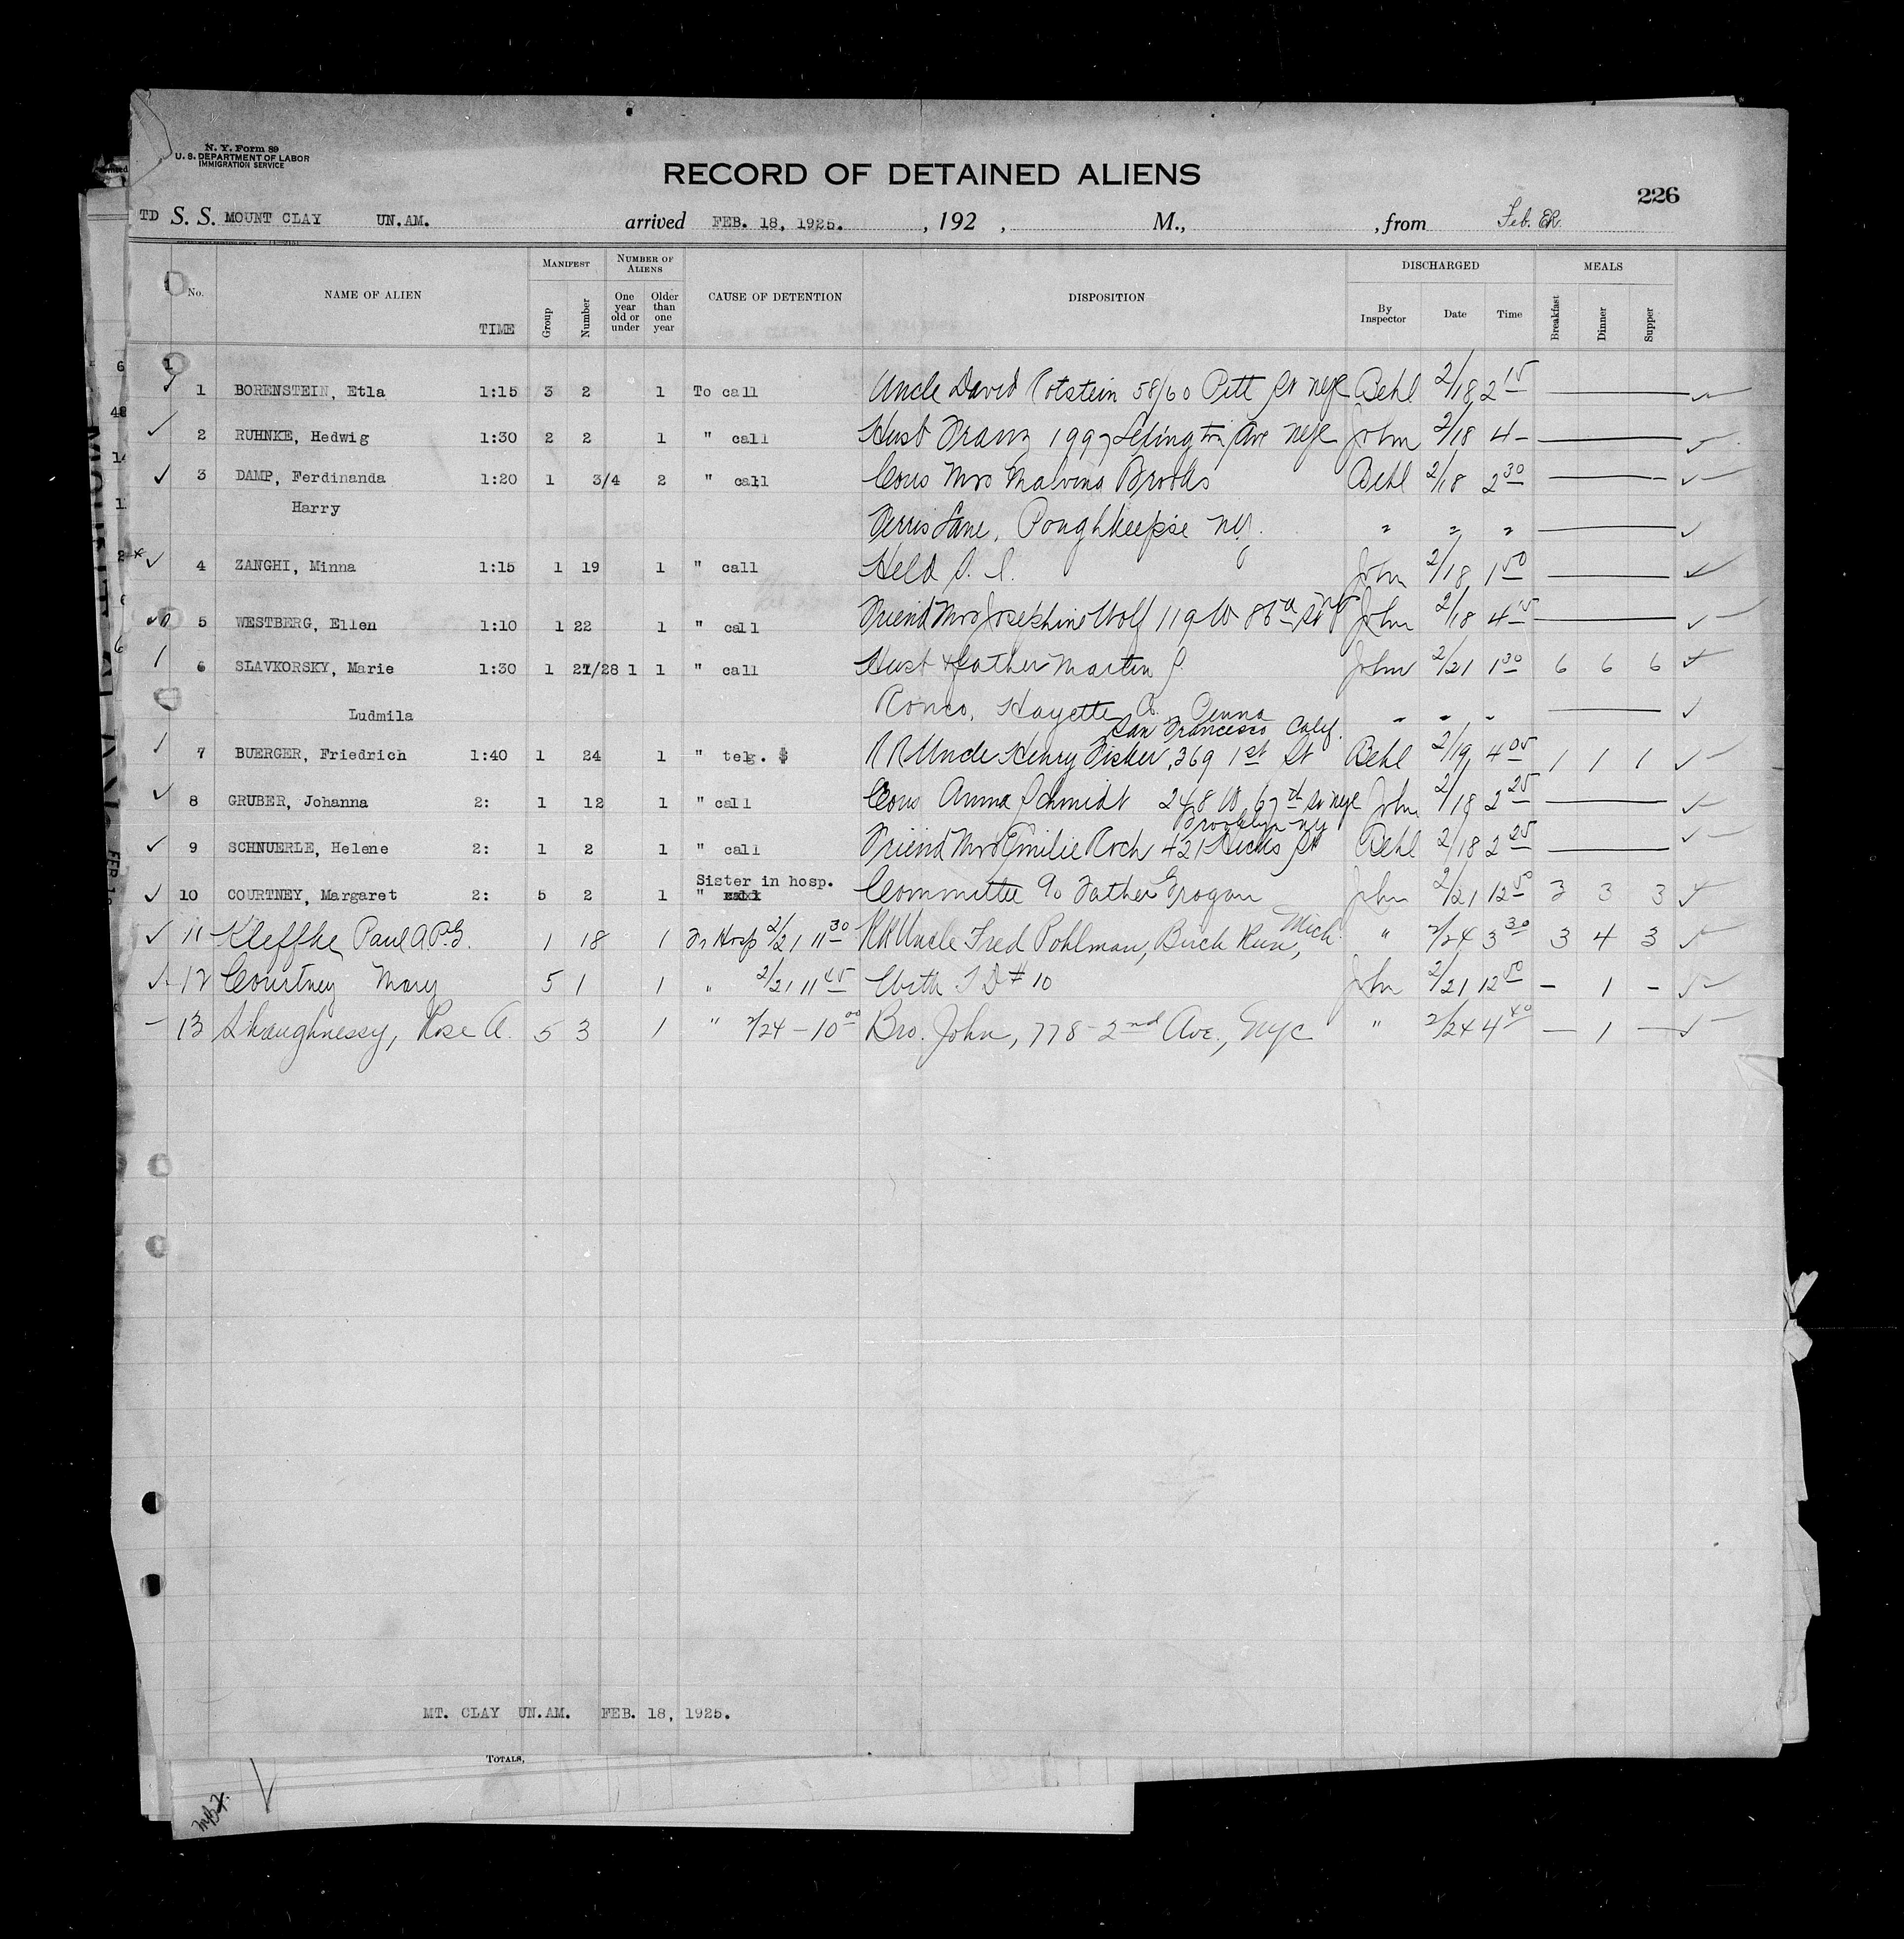 N. Y. Form 89
U. S. DEPARTMENT OF LABOR
IMMIGRATION SERVICE
RECORD OF DETAINED ALIENS
226
TD S. S. MOUNT CLAY UN.AM. arrived FEB. 18, 1925. , 192 , M., , from Feb.
MANIFEST NUMBER OF ALIENS DISCHARGED MEALS
No. NAME OF ALIEN TIME Group Number One year old or under Older than one year CAUSE OF DETENTION DISPOSITION By Inspector Date Time Breakfast Dinner Supper
1 BORENSTEIN, Etla 1:15 3 2 1 To call Uncle David Rotstein 58/60 Pitt St NYC Behl 2/18 2 15
2 RUHNKE, Hedwig 1:30 2 2 1 " call Husb Franz 1997 Lexington Ave NYC John 2/18 4 -
3 DAMP, Ferdinanda 1:20 1 3/4 2 " call Cous Mrs Malvina Brooks Behl 2/18 2 30
Harry Ferris Lane, Poughkeepsie NY. " " "
4 ZANGHI, Minna 1:15 1 19 1 " call Held S. I. John 2/18 1 50
5 WESTBERG, Ellen 1:10 1 22 1 " call Friend Mrs Josephine Wolf 119 W 86th St NY John 2/18 4 15
6 SLAVKORSKY, Marie 1:30 1 27/28 1 1 " call Husb & father Martin S. John 2/21 1 30 6 6 6
Ludmila Ronco, Fayette Co. Penna " " "
San Francisco Calif.
7 BUERGER, Friedrich 1:40 1 24 1 " telg. $ RR Uncle Henry Fisker, 369 1st St Behl 2/19 4 05 1 1 1
8 GRUBER, Johanna 2: 1 12 1 " call Cous Anna Schmidt 248 W 67th St NYC John 2/18 2 25
Brooklyn NY
9 SCHNUERLE, Helene 2: 1 2 1 " call Friend Mrs Emilie Koch 421 Hicks St Behl 2/18 2 25
Sister in hosp.
10 COURTNEY, Margaret 2: 5 2 1 " call Committee c/o Father Grogan John 2/21 12 50 3 3 3
11 Kleffke Paul A.P.G. 1 18 1 Fr Hosp 2/21 11 30 RR Uncle Fred Pohlman, Birch Run, Mich " 2/24 3 30 3 4 3
12 Courtney Mary 5 1 1 " 2/21 11 45 With T D # 10 John 2/21 12 50 - 1 -
13 Shaughnessy, Rose A. 5 3 1 " 2/24 - 10 00 Bro. John, 778 - 2nd Ave., NYC " 2/24 4 40 - 1 -
MT. CLAY UN.AM. FEB. 18, 1925.
TOTALS,